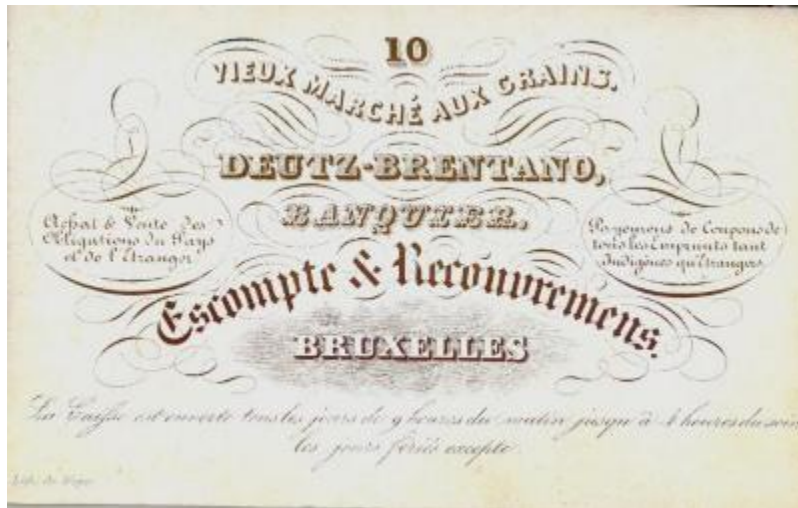 10
VIEUX MARCHÉ AUX GRAINS.
DEUTZ-BRENTANO,
BANQUIER,
Achat & Vente des
Obligations du Pays
et de l'Etranger
Payemens de Coupons de
tous les Emprunts tant
Indigènes qu'Etrangers
Escompte & Recouvremens.
BRUXELLES
La Caisse est ouverte tous les jours de 9 heures du matin jusqu'à heures du soir
les jours fériés excepté.
Lith. de